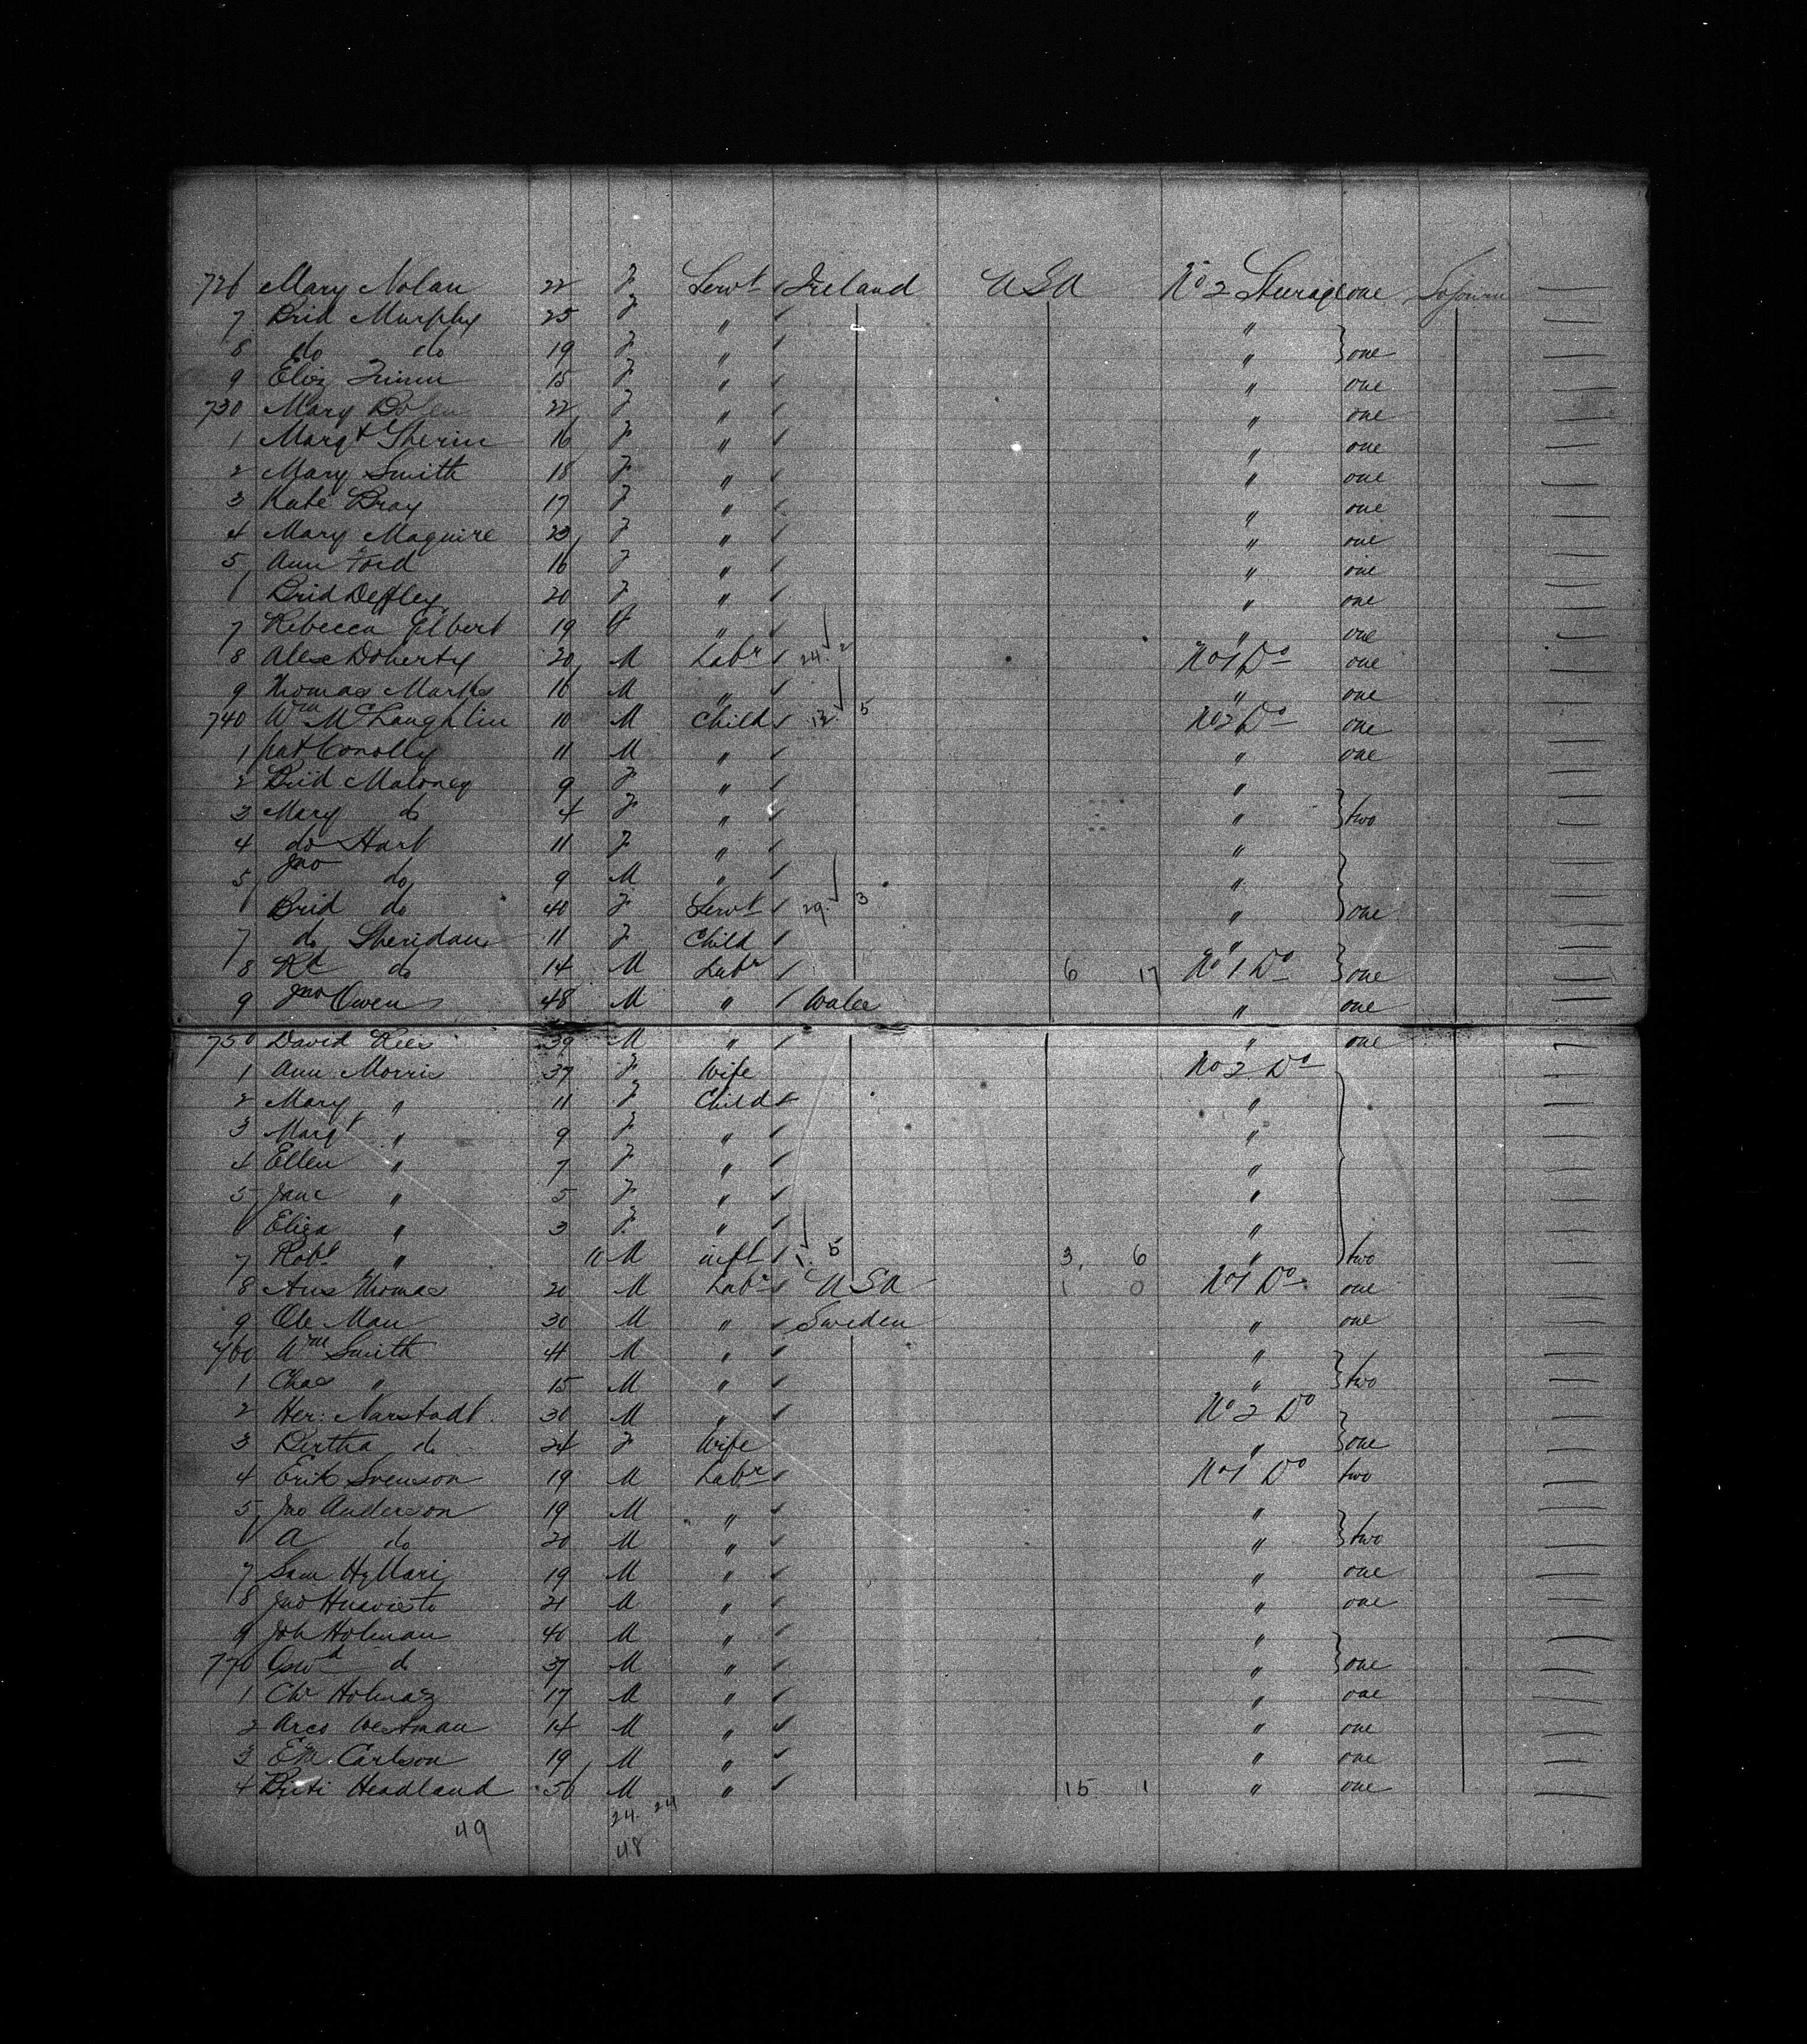 726 Mary Nolan 22 F Servt Ireland USA No 2 Steerage one Sojourn
7 Brid Murphy 25 F " "
8 do do 19 F " " one
9 Eliz 15 F " " one
730 Mary Dolen 22 F " " one
1 Margt Sherin 16 F " " one
2 Mary Smith 18 F " " one
3 Kate Bray 17 F " " one
4 Mary Maguire 23 F " " one
5 Ann Ford 16 F " " one
6 Brid Deffley 20 F " " one
7 Rebecca Elbert 19 F " " one
8 Alex Doherty 20 M Labr 24 2 No 1 Do one
9 Thomas Marks 16 M " " one
740 Wm McLaughlin 10 M Child 12 5 No 2 Do one
1 Pat Conolly 11 M " " one
2 Brid Maloney 9 F " "
3 Mary do 4 F " " two
4 do Hart 11 F " "
5 Jno do 9 M " "
6 Brid do 40 F Servt 29 3 " one
7 do Sheridan 11 F Child "
8 Rd do 14 M Labr 6 17 No 1 Do one
9 Jno Owen 48 M " Wales " one
750 David Rees 39 M " " one
1 Ann Morris 37 F Wife No 2 Do
2 Mary " 11 F Child "
3 Margt " 9 F " "
4 Ellen " 7 F " "
5 Jane " 5 F " "
6 Eliza " 3 F " "
7 Robt " 11 M inft 1 5 3 6 " two
8 Thomas 20 M Labr USA 1 0 No 1 Do one
9 Ole Man 30 M " Sweden " one
760 Wm Smith 41 M " "
1 Chas " 15 M " " two
2 Her: Narstadt 30 M " No 2 Do
3 Bertha do 24 F Wife " one
4 Erik Svenson 19 M Labr No 1 Do two
5 Jno Anderson 19 M " "
6 A do 20 M " " two
7 Sam 19 M " " one
8 Jno 21 M " " one
9 Joh Holman 40 M " "
770 do 37 M " " one
1 17 M " " one
2 Westman 14 M " " one
3 Em Carlson 19 M " " one
4 Headland 56 M " 15 1 " one
49 24 24
48